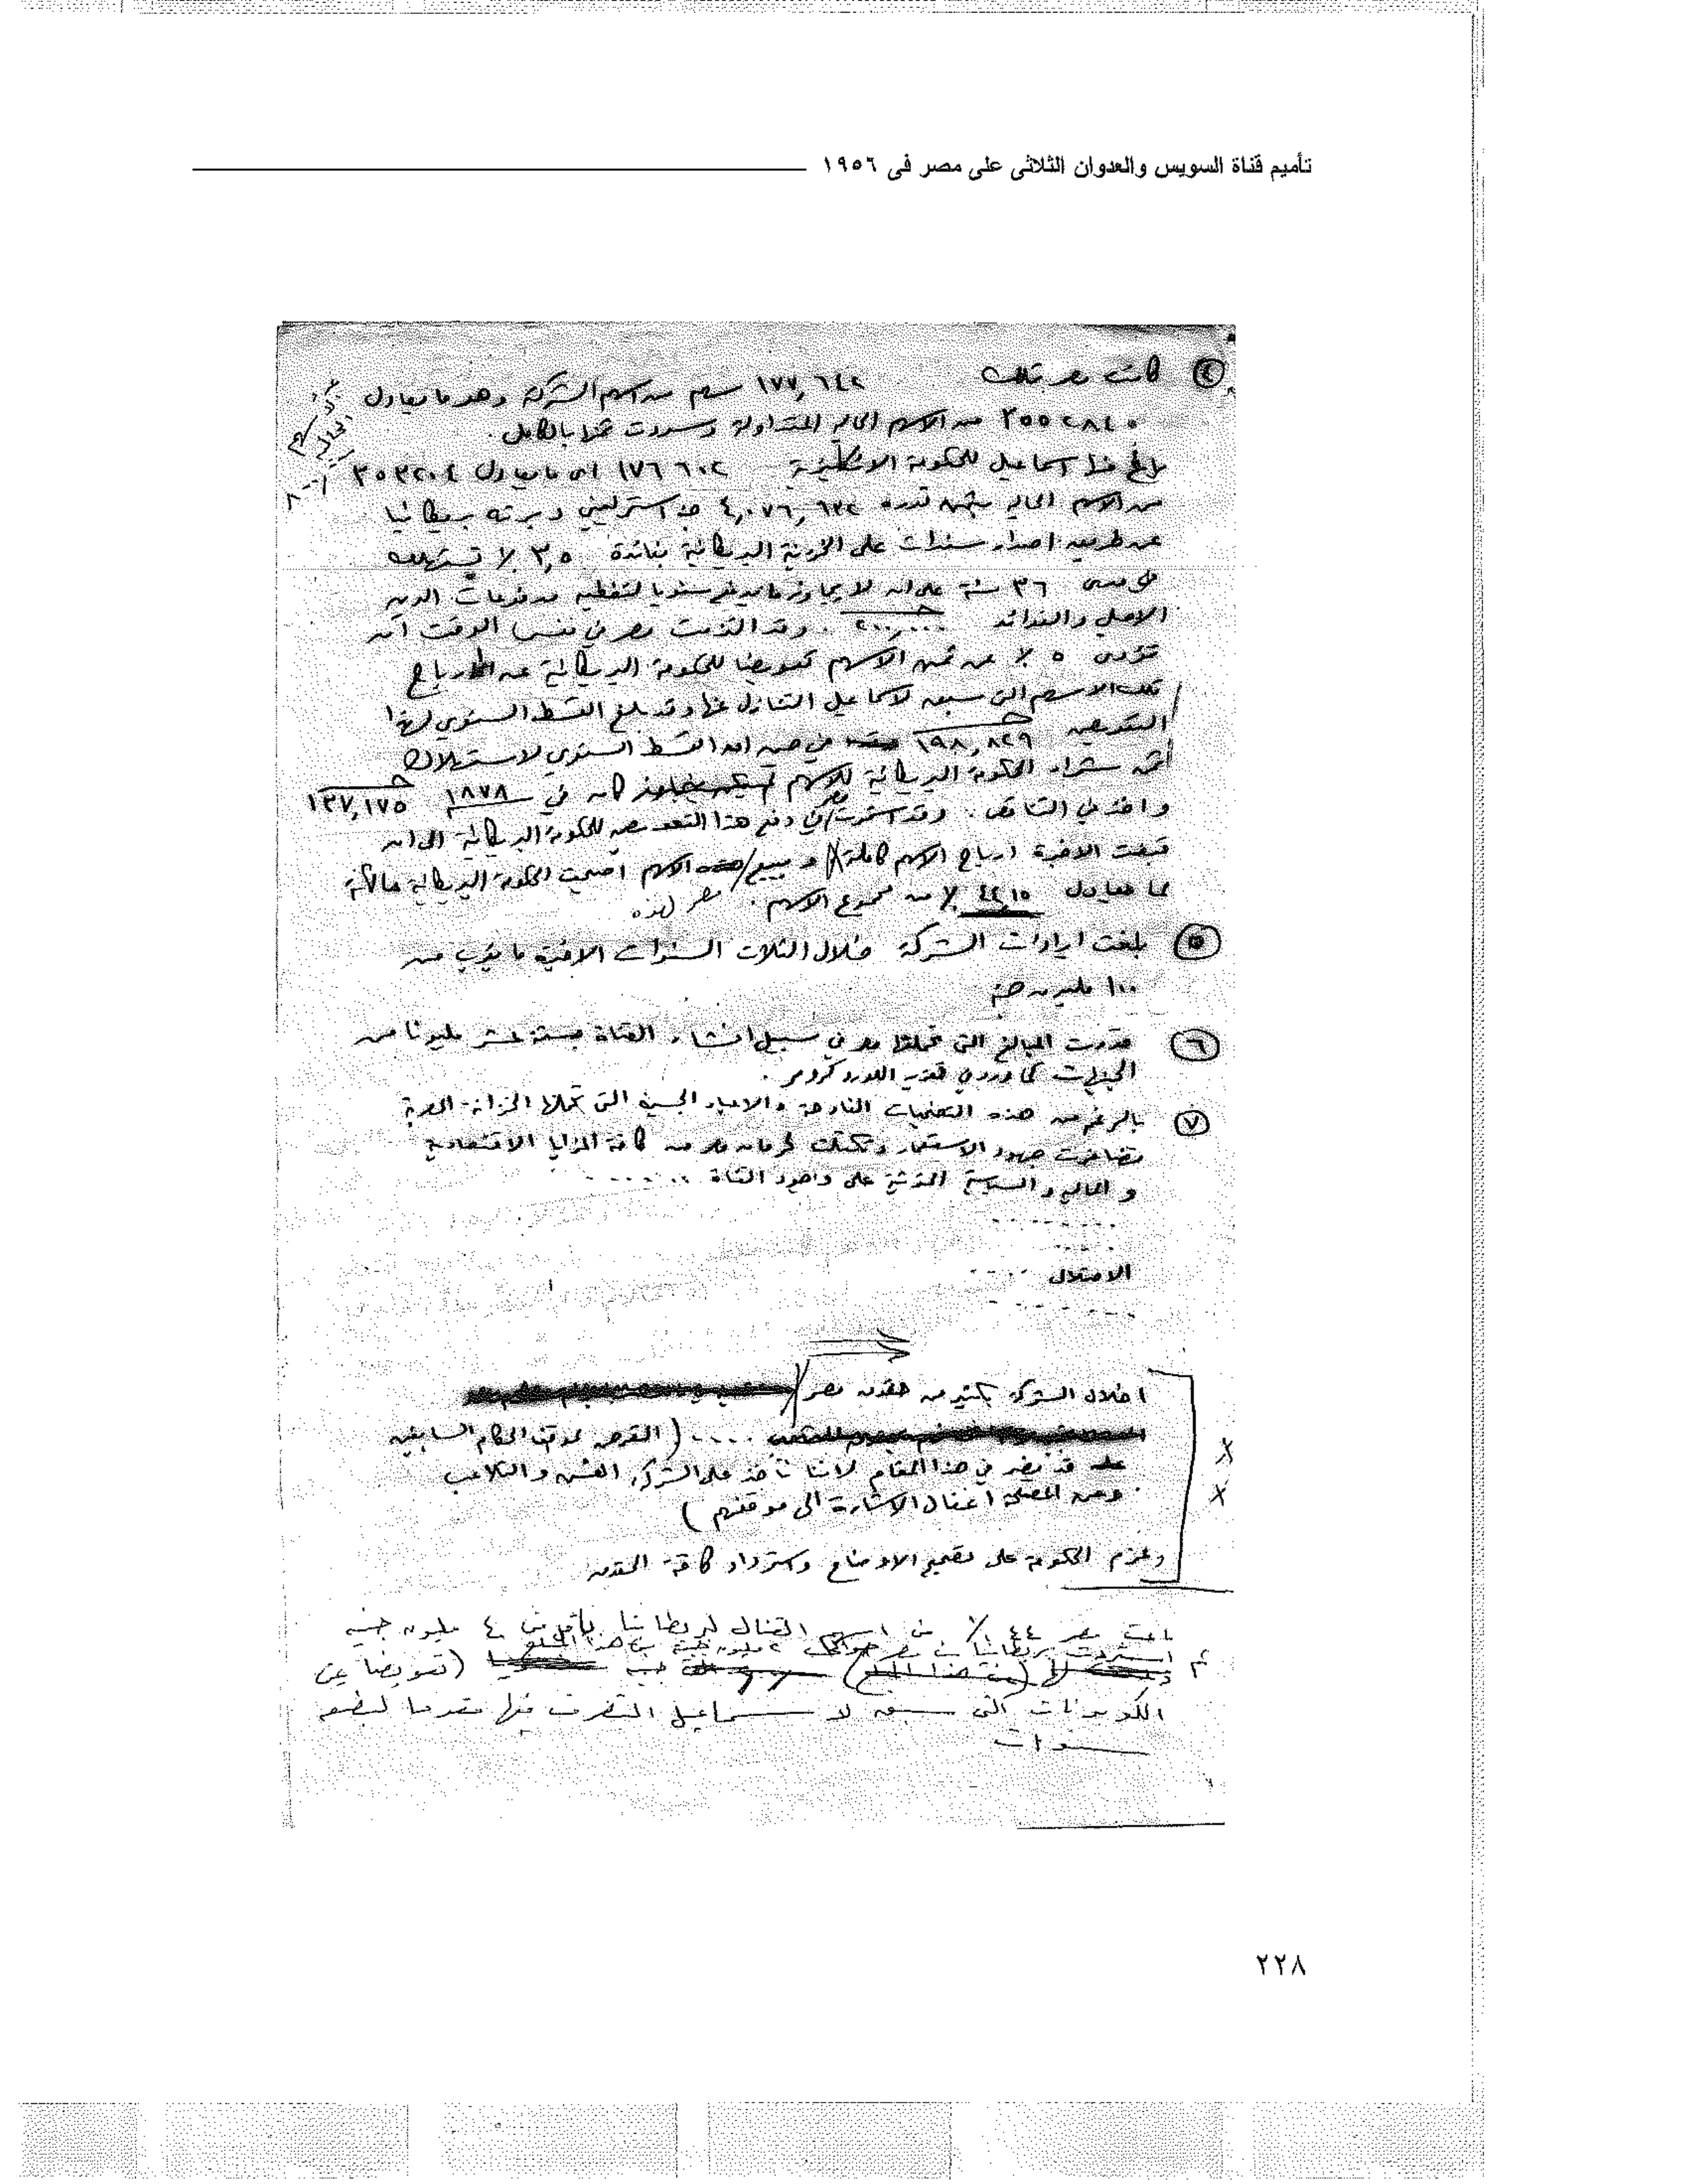 تأميم قناة السويس والعدوان الثلاثى على مصر فى ١٩٥٦
٤ كانت مصر تملك ١٧٧,٦٤٢ سهم من اسهم الشركة وهو ما يعادل
من الاسهم الحالية المتداولة وسددت ثمنها بالكامل .
اسماعيل للحكومة الانكليزية ١٧٦٦٠٢ اى ما يعادل ٣٥٣٢٠٤
من الاسهم الحالية بثمن قدره استرليني دبرته بريطانيا
عن طريق اصدار سندات على الخزينة البريطانية بفائدة ٣,٥ ٪ تستهلك
على مدى ٣٦ سنة على انه لا يجاوز ما يدفع سنويا لتغطية مدفوعات الدين
الاصلي والفوائد . وقد التزمت مصر في نفس الوقت أن
تؤدى ٥ ٪ من ثمن الاسهم تعويضا للحكومة البريطانية عن ارباح
تلك الاسهم التى سبق لاسماعيل التنازل عنها وقد بلغ القسط السنوي لهذا
التعويض ١٩٨,٨٢٩ في حين ان القسط السنوي لاستهلاك
ثمن شراء الحكومة البريطانية للاسهم كان في ١٨٧٨ ١٣٧,١٧٥
واخذ في التناقص . وقد استمرت مصر في دفع هذا التعويض للحكومة البريطانية الى ان
قبضت الاخيرة ارباح الاسهم كاملة و ببيع مصر لهذه الاسهم اصبحت الحكومة البريطانية مالكة
لما يعادل ٤٤,١٥ ٪ من مجموع الاسهم .
٥ بلغت ايرادات الشركة خلال الثلاث السنوات الاخيرة ما يقرب من
١٠٠ مليون جنيه
٦ قدرت المبالغ التى تحملتها مصر في سبيل انشاء القناة بستة عشر مليونا من
الجنيهات كما ورد في تقرير اللورد كرومر .
٧ بالرغم من هذه التضحيات الفادحة والاعباء الجسيمة التى تحملتها الخزانة المصرية
تضافرت جهود الاستعمار وتكتلت لحرمان مصر من كافة المزايا الاقتصادية
و المالية و السياسية المترتبة على وجود القناة ......
.......
.....
الاحتلال ....
.......
اخلال الشركة بكثير من حقوق مصر
.... ( التعرض لموقف الحكام السابقين
قد يضر في هذا المقام لاننا نأخذ على الشركة الغش والتلاعب
ومن المصلحة اغفال الاشارة الى موقفهم )
وعزم الحكومة على تصحيح الاوضاع واسترداد كافة الحقوق
باعت مصر ٤٤ ٪ من اسهم القنال لبريطانيا بأقل من ٤ مليون جنيه
ثم استردت بريطانيا من مصر حوالى ٢ مليون جنيه من هذا المبلغ
(من هذا المبلغ) جنيه (تعويضا عن
الكوبونات التى سبق لاسماعيل التصرف فيها مقدما لبضعة
سنوات
٢٢٨